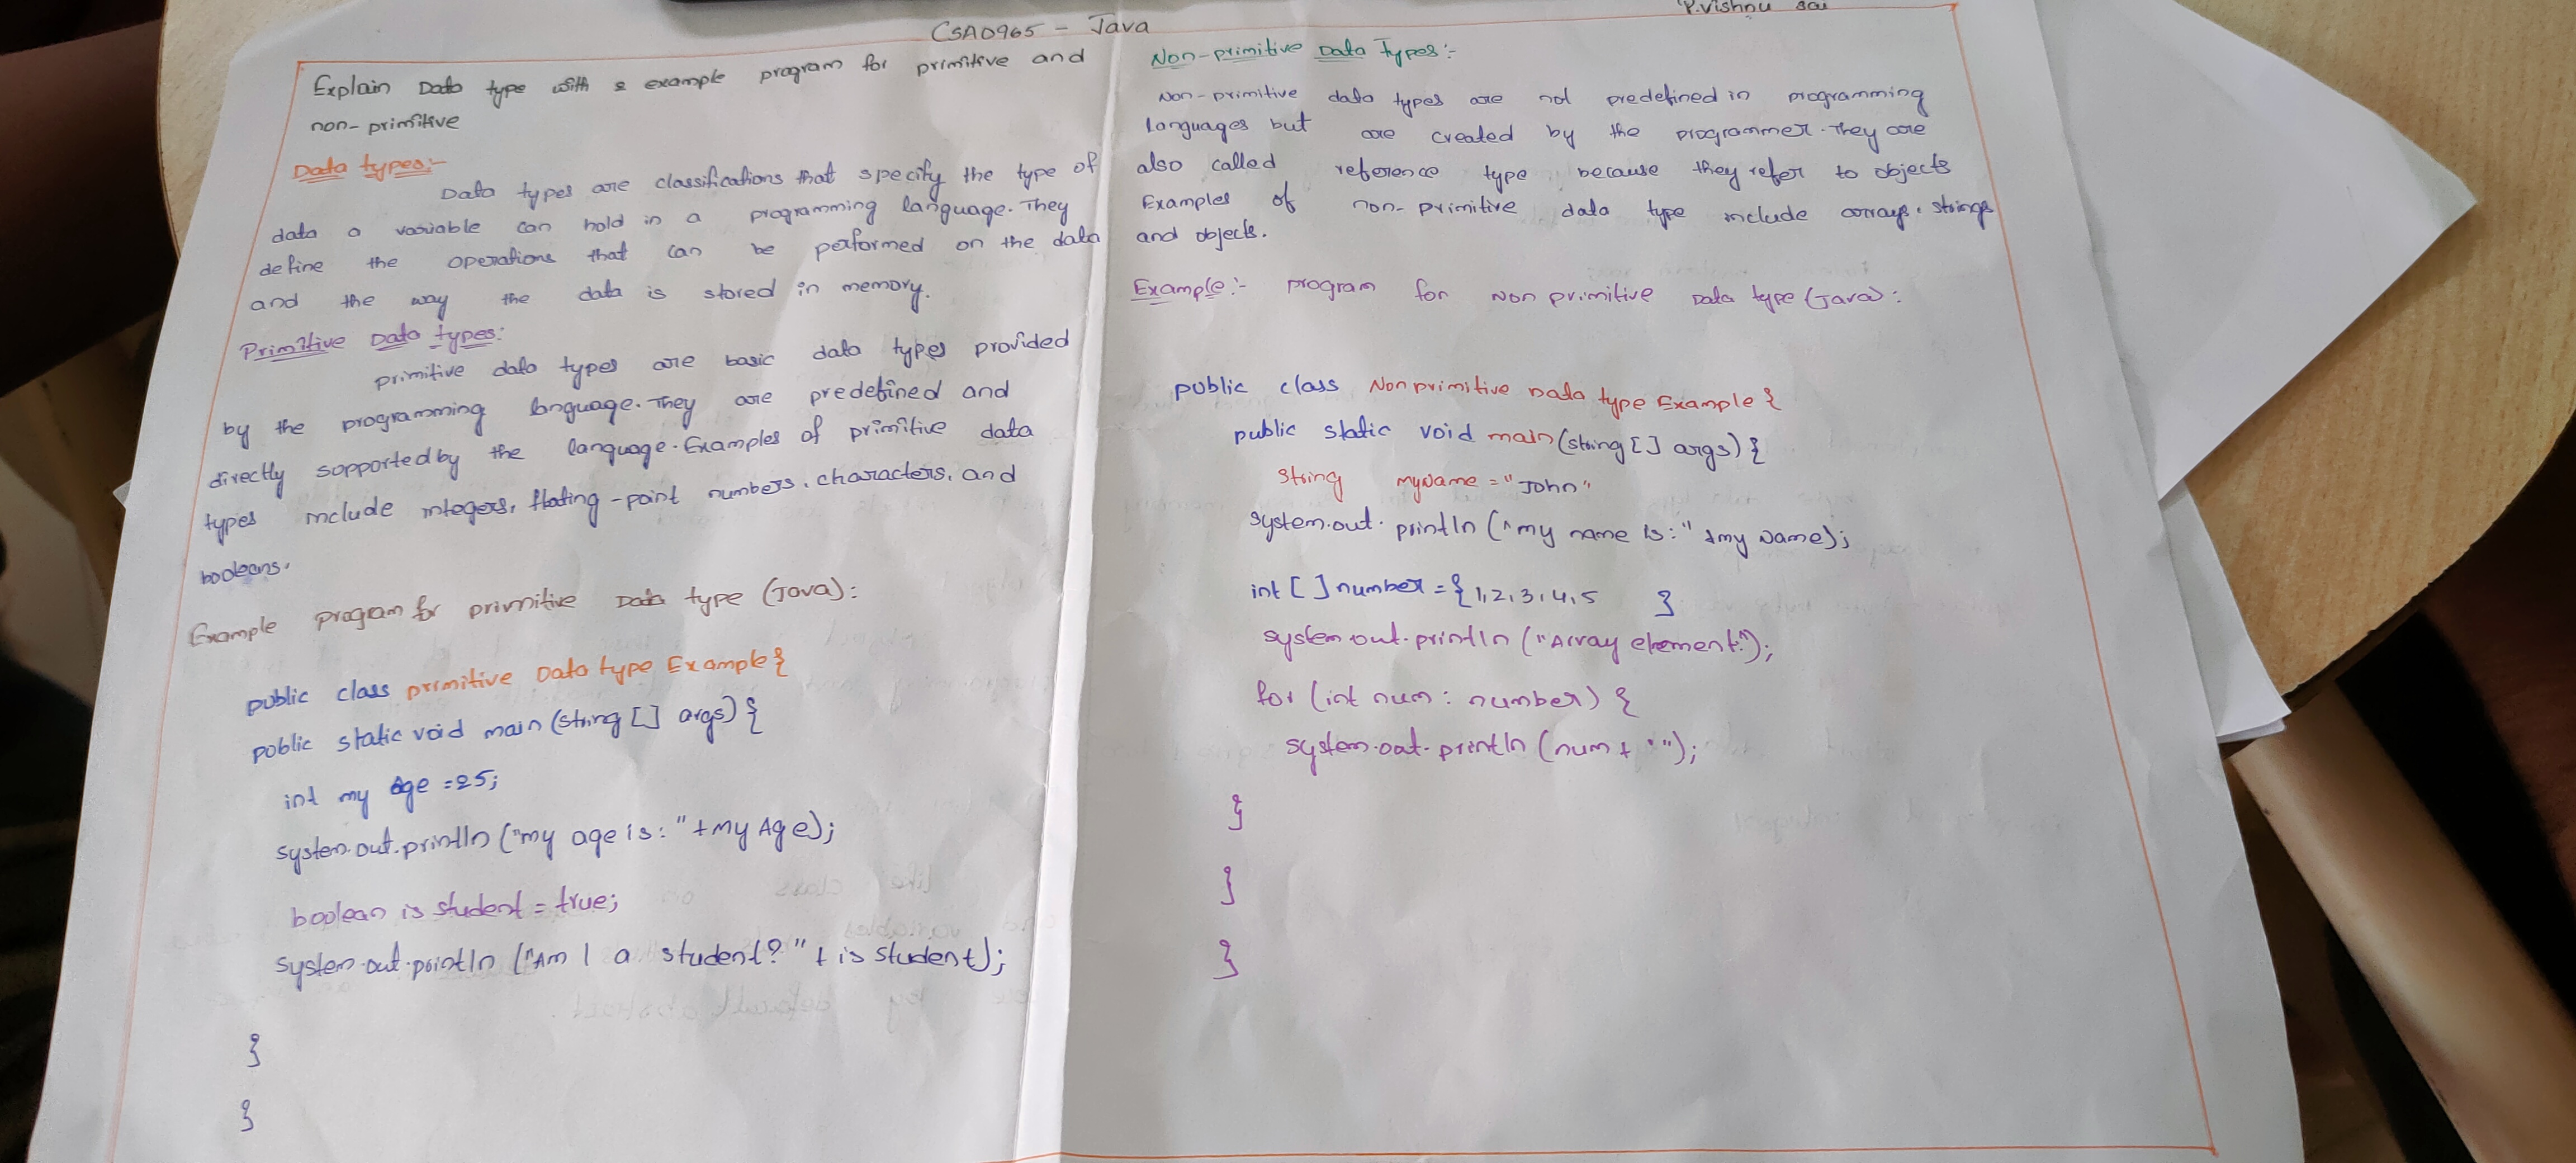 CSA0965 - Java
P.Vishnu Sai
Explain Data type with a example program for primitive and
non-primitive
Data types:-
Data types are classifications that specify the type of
data a variable can hold in a programming language. They
define the operations that can be performed on the data
and the way the data is stored in memory.
Primitive Data types:
primitive data types are basic data types provided
by the programming language. They are predefined and
directly supported by the language. Examples of primitive data
types include integers, floating-point numbers, characters, and
booleans.
Example program for primitive Data type (Java):
public class primitive Data type Example {
public static void main (string [] args) {
int my Age = 25;
system.out.println ("my age is: " + my Age);
boolean is student = true;
system.out.println ("Am I a student? " + is student);
}
}
Non-primitive Data Types:-
Non-primitive data types are not predefined in programming
languages but are created by the programmer. They are
also called reference type because they refer to objects
Examples of non-primitive data type include arrays, strings
and objects.
Example:- program for Non primitive Data type (Java):
public class Non primitive Data type Example {
public static void main (string [] args) {
string myName = "John"
system.out. println ("my name is: " + my Name);
int [] number = { 1,2,3,4,5 }
system.out.println ("Array element:");
for (int num : number) {
system.out.println (num + " ");
}
}
}